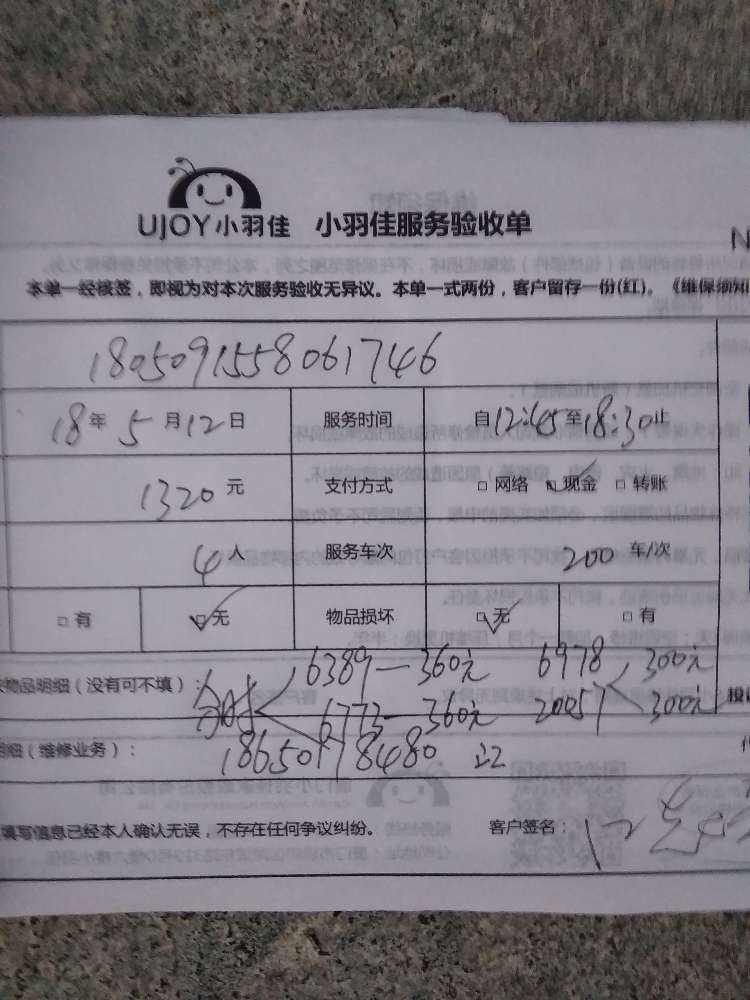 UJOY小羽佳 小羽佳服务验收单
N
本单一经核签，即视为对本次服务验收无异议。本单一式两份，客户留存一份(红)。《维保须知
1805091558061746
18年 5月12日 服务时间 自12:45至18:30止
1320元 支付方式 □ 网络 □ 现金 □ 转账
4人 服务车次 200 车/次
□ 有 □ 无 物品损坏 □ 无 □ 有
物品明细（没有可不填）： 6389—360元 6978 300元
6773—360元 20051 300元
细（维修业务）： 18650178480
填写信息已经本人确认无误，不存在任何争议纠纷。 客户签名：